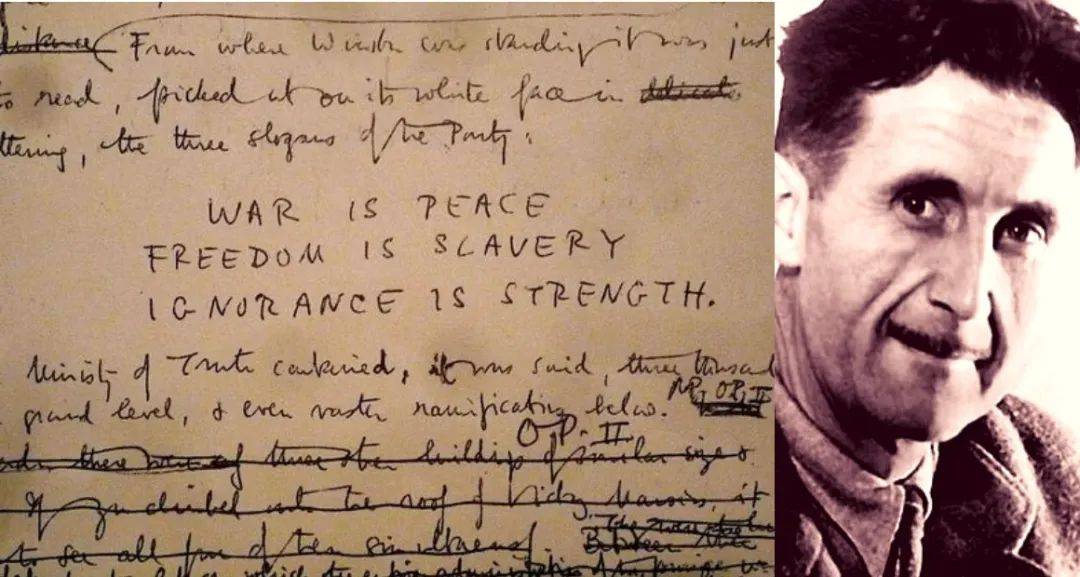 distance From where Winston was standing it was just
to read, picked out on its white face in delicate
ttering, the three slogans of the Party:
WAR IS PEACE
FREEDOM IS SLAVERY
IGNORANCE IS STRENGTH.
Ministry of Truth contained, it was said, three thousand
ground level, & even vaster ramifications below.
O.P. II
there were three other buildings of similar size &
If you climbed onto the roof of Victory Mansions, it
to see all four of them simultaneously.